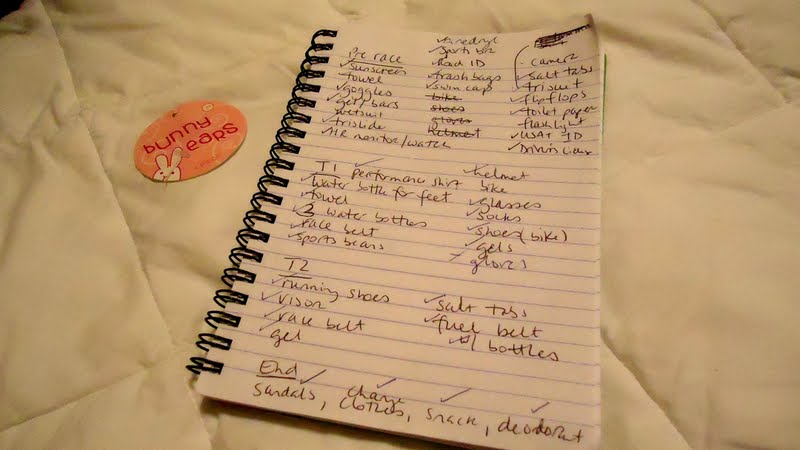 bunny
ears
Pre race
sunscreen
towel
goggles
gel/bars
wetsuit
trislide
HR monitor/watch
Benadryl
sports bra
Road ID
trash bags
swim cap
bike
shoes
gloves
helmet
camera
salt tabs
trisuit
flipflops
toilet paper
flashlight
USAT ID
T1 performance shirt
water bottle for feet
towel
2 water bottles
race belt
sports beans
helmet
bike
glasses
socks
shoes (bike)
gels
gloves
T2
running shoes
visor
race belt
gel
salt tabs
fuel belt
w/ bottles
End
sandals, change clothes, snack, deodorant